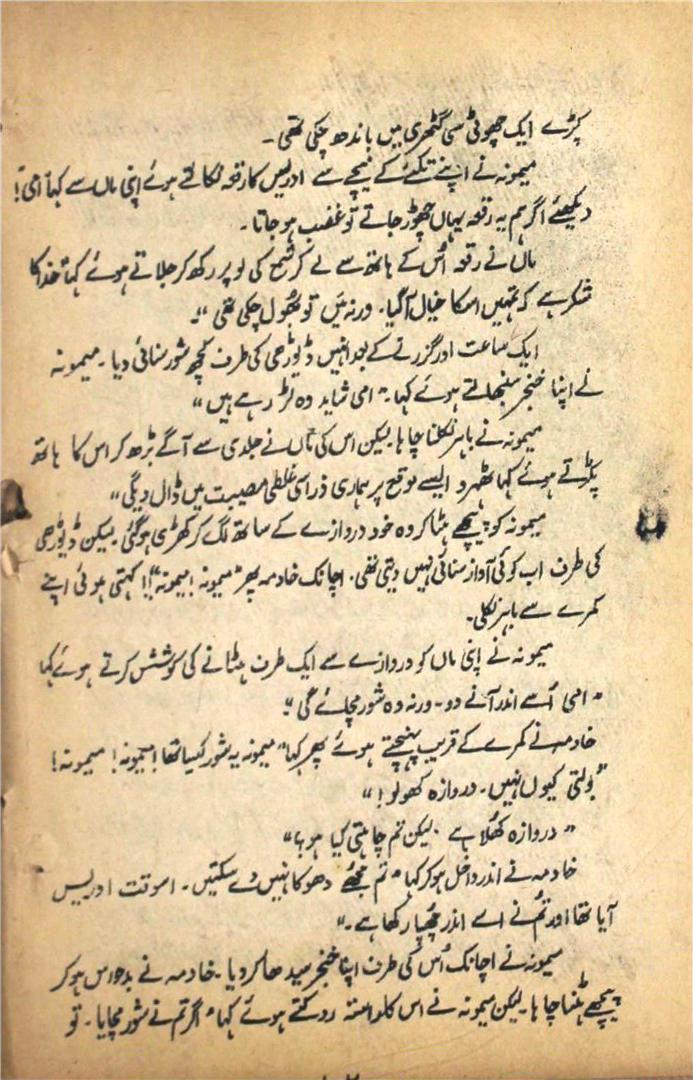 کپڑے ایک چھوٹی سی گٹھری میں باندھ چکی تھی۔
میمونہ نے اپنے تکئے کے نیچے سے ادریس کا رقعہ نکالتے ہوئے اپنی ماں سے کہا "امی!
دیکھئے اگر ہم یہ رقعہ یہاں چھوڑ جاتے تو غضب ہو جاتا۔
ماں نے رقعہ اُس کے ہاتھ سے لے کر شمع کی لو پر رکھ کر جلاتے ہوئے کہا "خدا کا
شکر ہے کہ تمہیں اسکا خیال آگیا۔ ورنہ میں تو بھُول چکی تھی"۔
ایک ساعت اور گزرنے کے بعد انہیں ڈیوڑھی کی طرف کچھ شور سنائی دیا۔ میمونہ
نے اپنا خنجر سنبھالتے ہوئے کہا۔ "امی شاید وہ لڑ رہے ہیں"
میمونہ نے باہر نکلنا چاہا۔ لیکن اس کی ماں نے جلدی سے آگے بڑھ کر اس کا ہاتھ
پکڑتے ہوئے کہا ٹھہرو ایسے موقع پر ہماری ذرا سی غلطی مصیبت میں ڈال دیگی"
میمونہ کو پیچھے ہٹا کر وہ خود دروازے کے ساتھ لگ کر کھڑی ہوگئی لیکن ڈیوڑھی
کی طرف اب کوئی آواز سنائی نہیں دیتی تھی۔ اچانک خادمہ پھر میمونہ! میمونہ"!! کہتی ہوئی اپنے
کمرے سے باہر نکلی۔
میمونہ نے اپنی ماں کو دروازے سے ایک طرف ہٹانے کی کوشش کرتے ہوئے کہا
"امی اُسے اندر آنے دو۔ ورنہ وہ شور مچائے گی"۔
خادمہ نے کمرے کے قریب پہنچتے ہوئے پھر کہا "میمونہ یہ شور کیسا تھا! میمونہ! میمونہ!
"بولتی کیوں نہیں۔ دروازہ کھولو!"
"دروازہ کھُلا ہے۔ لیکن تم چاہتی کیا ہو؟"
خادمہ نے اندر داخل ہو کر کہا "تم مجھے دھوکا نہیں دے سکتیں۔ اسوقت ادریس
آیا تھا اور تُم نے اسے اندر چھُپا رکھا ہے۔"
میمونہ نے اچانک اُس کی طرف اپنا خنجر سیدھا کر دیا۔ خادمہ نے بدحواس ہو کر
پیچھے ہٹنا چاہا۔ لیکن میمونہ نے اس کا راستہ روکتے ہوئے کہا "اگر تم نے شور مچایا۔ تو